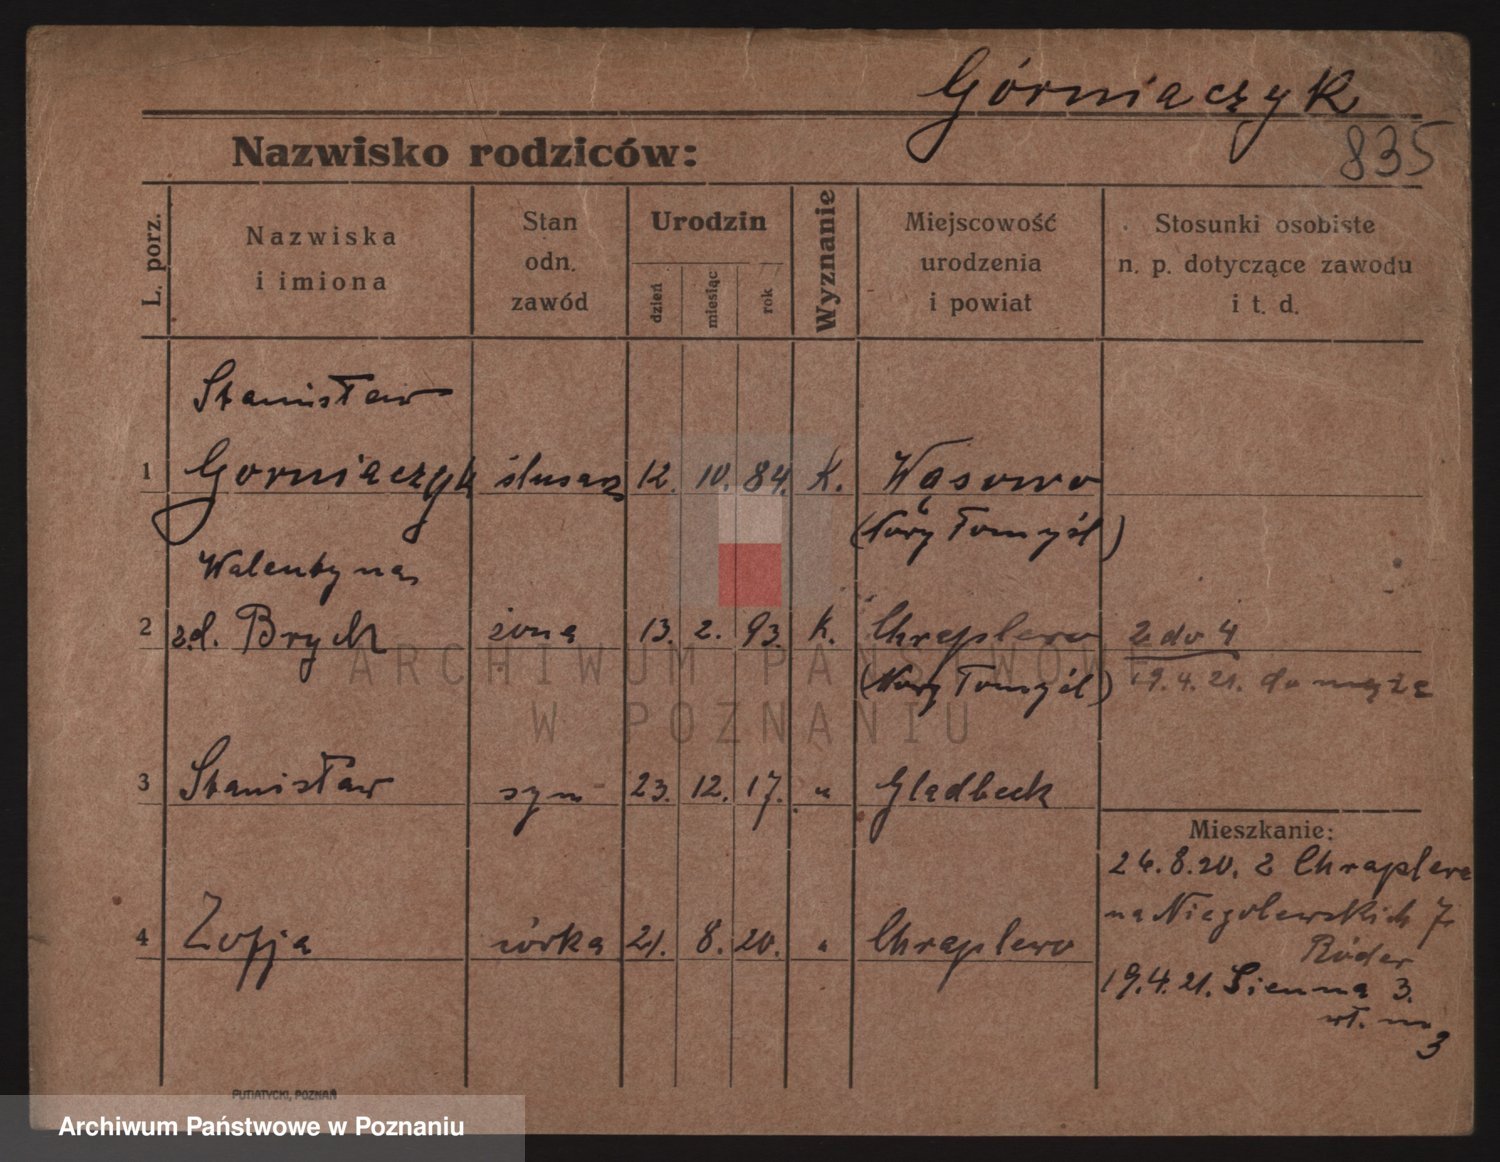 Górniaczyk
835
Nazwisko rodziców:
L. porz.
Nazwiska
i imiona
Stan
odn.
zawód
Urodzin
dzień
miesiąc
rok
Wyznanie
Miejscowość
urodzenia
i powiat
Stosunki osobiste
n. p. dotyczące zawodu
i t. d.
Stanisław
1 Gorniaczyk ślusarz 12. 10. 84. K. Wąsowo
(Nowy Tomyśl)
Walentyna
2 z.d. Brych żona 13. 2. 93. K. Chraplewo 2 do 4
(Nowy Tomyśl) 19.4.21. do męża
3 Stanisław syn 23. 12. 17. " Gladbeck
Mieszkanie:
26.8.20. z Chraplewa
na Niegolewskich 7.
Röder
4 Zofja córka 21. 8. 20. " Chraplewo
19.4.21. Sienna 3.
wł. m
3
ARCHIWUM PAŃSTWOWE
W POZNANIU
PUTIATYCKI, POZNAŃ
Archiwum Państwowe w Poznaniu